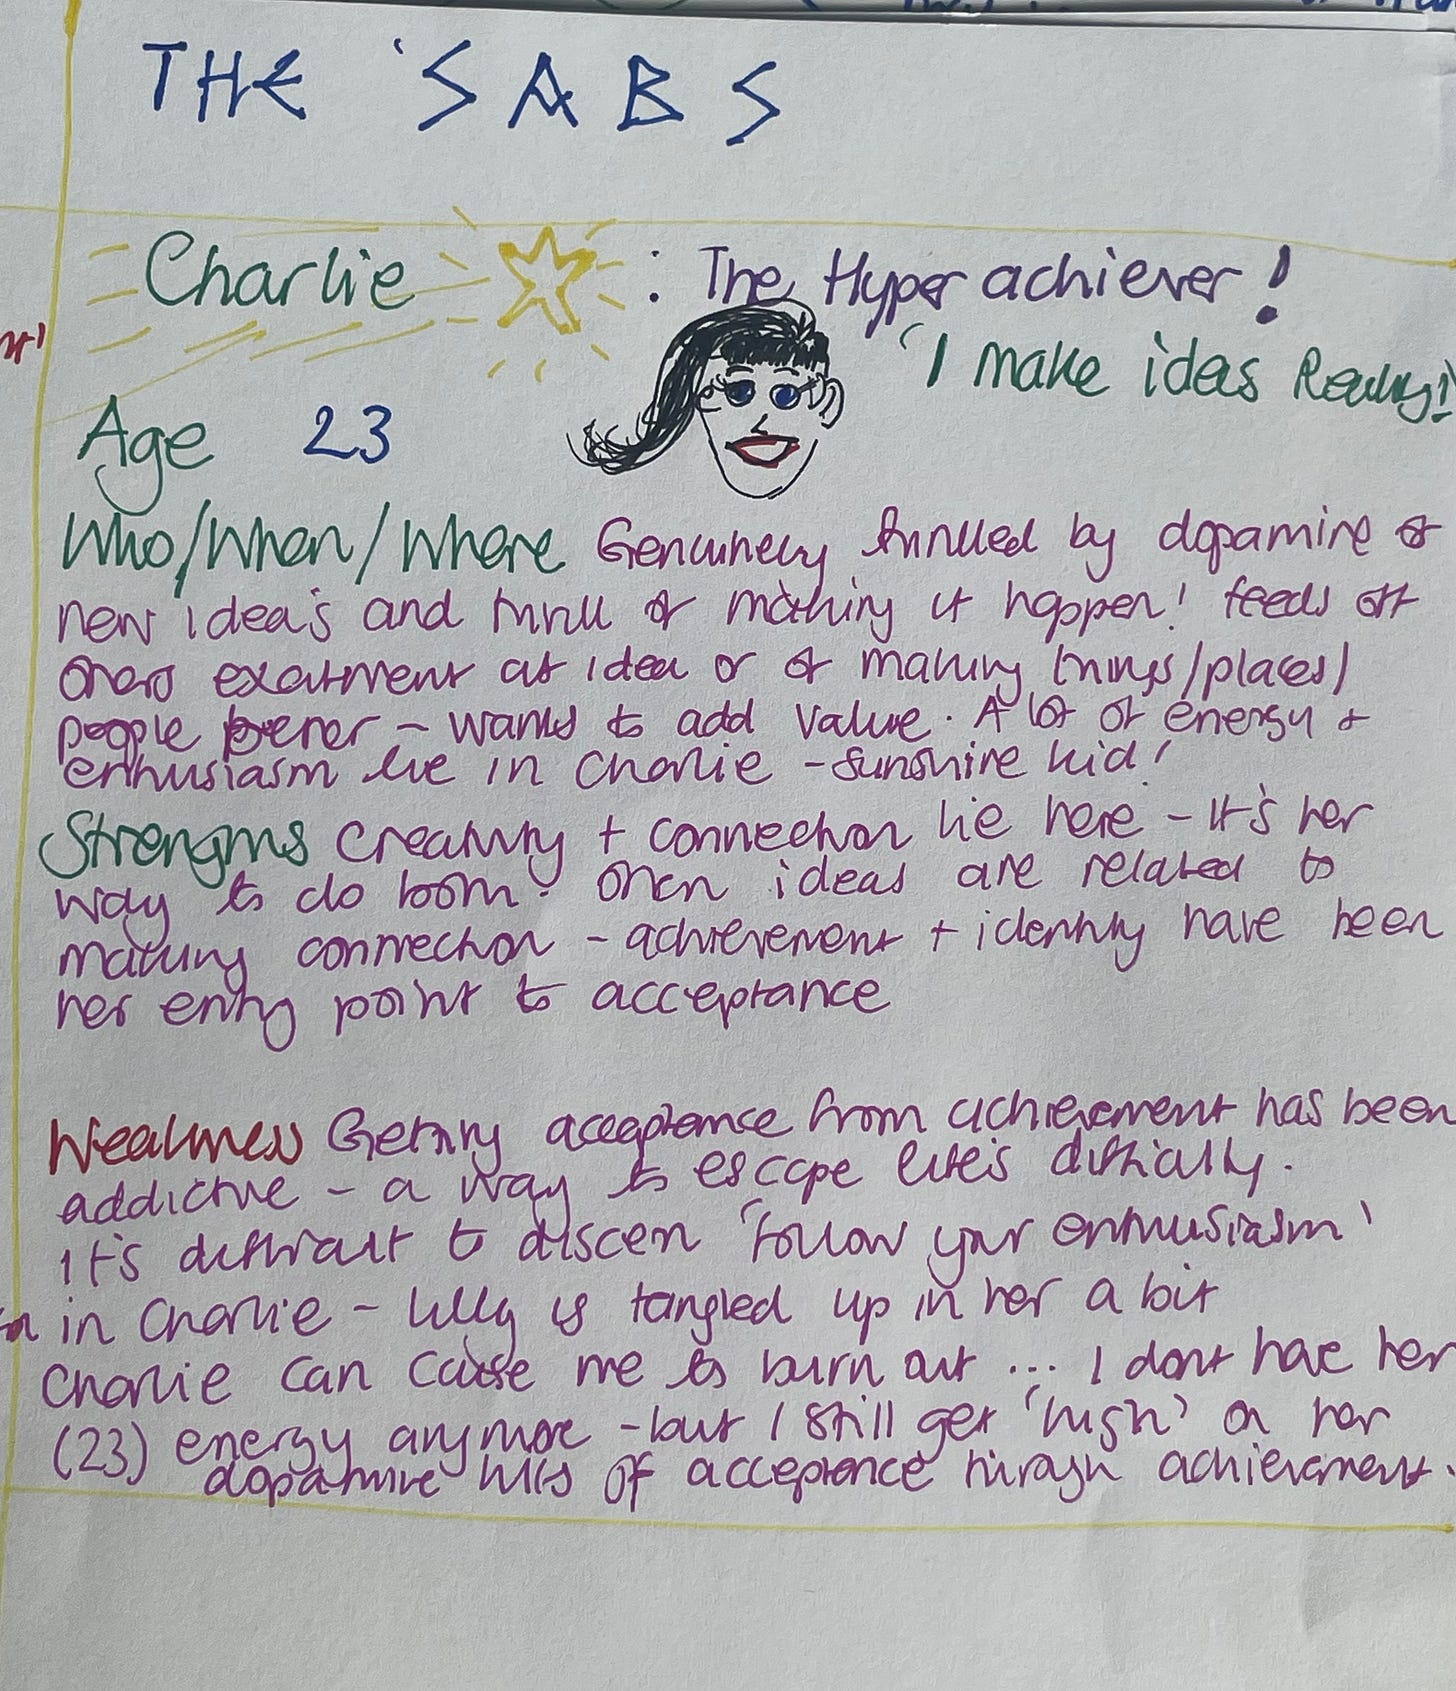 THE 'SABS
Charlie : The Hyper achiever!
'I make ideas Reality!
Age 23
Who/When/Where Genuinely thrilled by dopamine of
new idea's and thrill of making it happen! feeds off
others excitment at idea or of making things/places/
people better - wants to add value. A lot of energy +
enthusiasm lie in Charlie - sunshine kid!
Strengths Creativity + connection lie here - It's her
way to do both. Often ideas are related to
making connection - achievement + identity have been
her entry point to acceptance
Weakness Getting acceptance from achievement has been
addictive - a way to escape life's difficulty.
It's difficult to discern 'follow your enthusiasm'
in Charlie - is tangled up in her a bit
Charlie can cause me to burn out ... I dont have her
(23) energy anymore - but I still get 'high' on her
dopamine hits of acceptance through achievement.